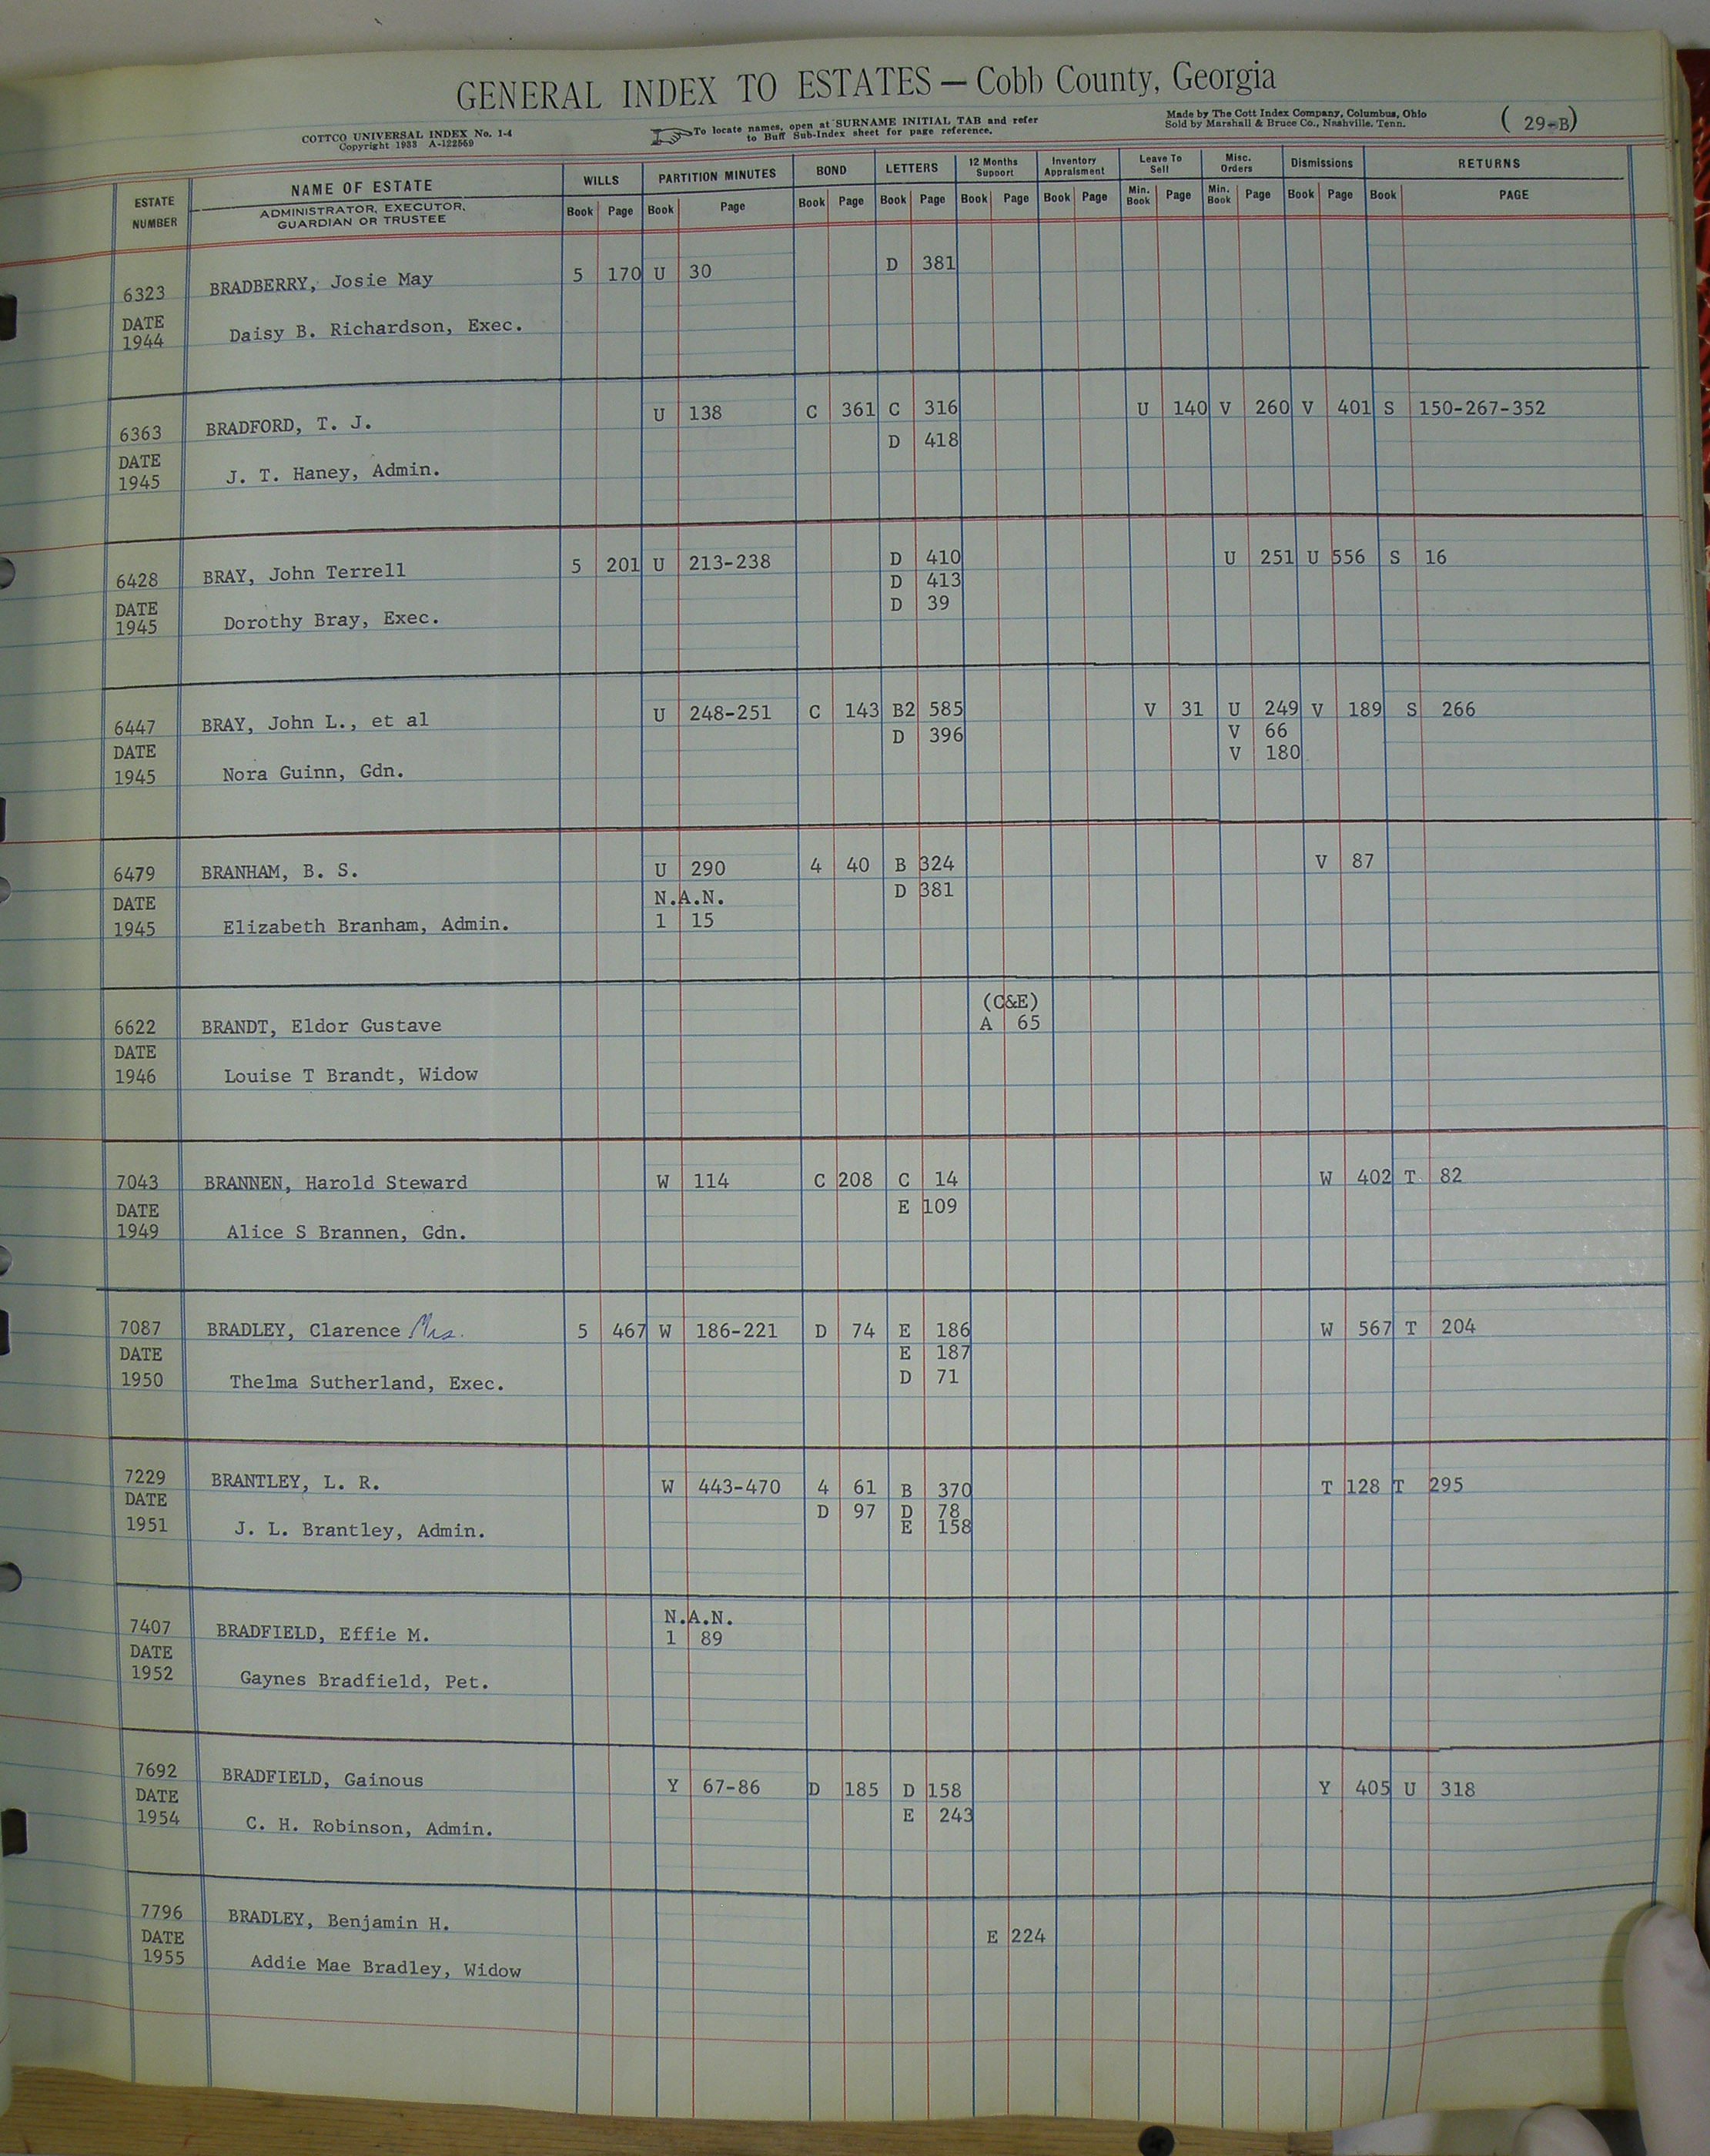 GENERAL INDEX TO ESTATES — Cobb County, Georgia
COTTCO UNIVERSAL INDEX No. 1-4
Copyright 1933 A-122559
To locate names, open at SURNAME INITIAL TAB and refer
to Buff Sub-Index sheet for page reference.
Made by The Cott Index Company, Columbus, Ohio
Sold by Marshall & Bruce Co., Nashville, Tenn.
( 29-B)
ESTATE NUMBER
NAME OF ESTATE
ADMINISTRATOR, EXECUTOR,
GUARDIAN OR TRUSTEE
WILLS PARTITION MINUTES BOND LETTERS 12 Months Support Inventory Appraisment Leave To Sell Misc. Orders Dismissions RETURNS
Book Page Book Page Book Page Book Page Book Page Book Page Min. Book Page Min. Book Page Book Page Book PAGE
6323 BRADBERRY, Josie May 5 170 U 30 D 381
DATE
1944 Daisy B. Richardson, Exec.
6363 BRADFORD, T. J. U 138 C 361 C 316 U 140 V 260 V 401 S 150-267-352
D 418
DATE
1945 J. T. Haney, Admin.
6428 BRAY, John Terrell 5 201 U 213-238 D 410 U 251 U 556 S 16
D 413
DATE D 39
1945 Dorothy Bray, Exec.
6447 BRAY, John L., et al U 248-251 C 143 B2 585 V 31 U 249 V 189 S 266
D 396 V 66
DATE V 180
1945 Nora Guinn, Gdn.
6479 BRANHAM, B. S. U 290 4 40 B 324 V 87
DATE N.A.N. D 381
1945 Elizabeth Branham, Admin. 1 15
(C&E)
6622 BRANDT, Eldor Gustave A 65
DATE
1946 Louise T Brandt, Widow
7043 BRANNEN, Harold Steward W 114 C 208 C 14 W 402 T 82
DATE E 109
1949 Alice S Brannen, Gdn.
7087 BRADLEY, Clarence Mrs. 5 467 W 186-221 D 74 E 186 W 567 T 204
DATE E 187
1950 Thelma Sutherland, Exec. D 71
7229 BRANTLEY, L. R. W 443-470 4 61 B 370 T 128 T 295
DATE D 97 D 78
1951 J. L. Brantley, Admin. E 158
N.A.N.
7407 BRADFIELD, Effie M. 1 89
DATE
1952 Gaynes Bradfield, Pet.
7692 BRADFIELD, Gainous Y 67-86 D 185 D 158 Y 405 U 318
DATE E 243
1954 C. H. Robinson, Admin.
7796 BRADLEY, Benjamin H.
DATE E 224
1955 Addie Mae Bradley, Widow